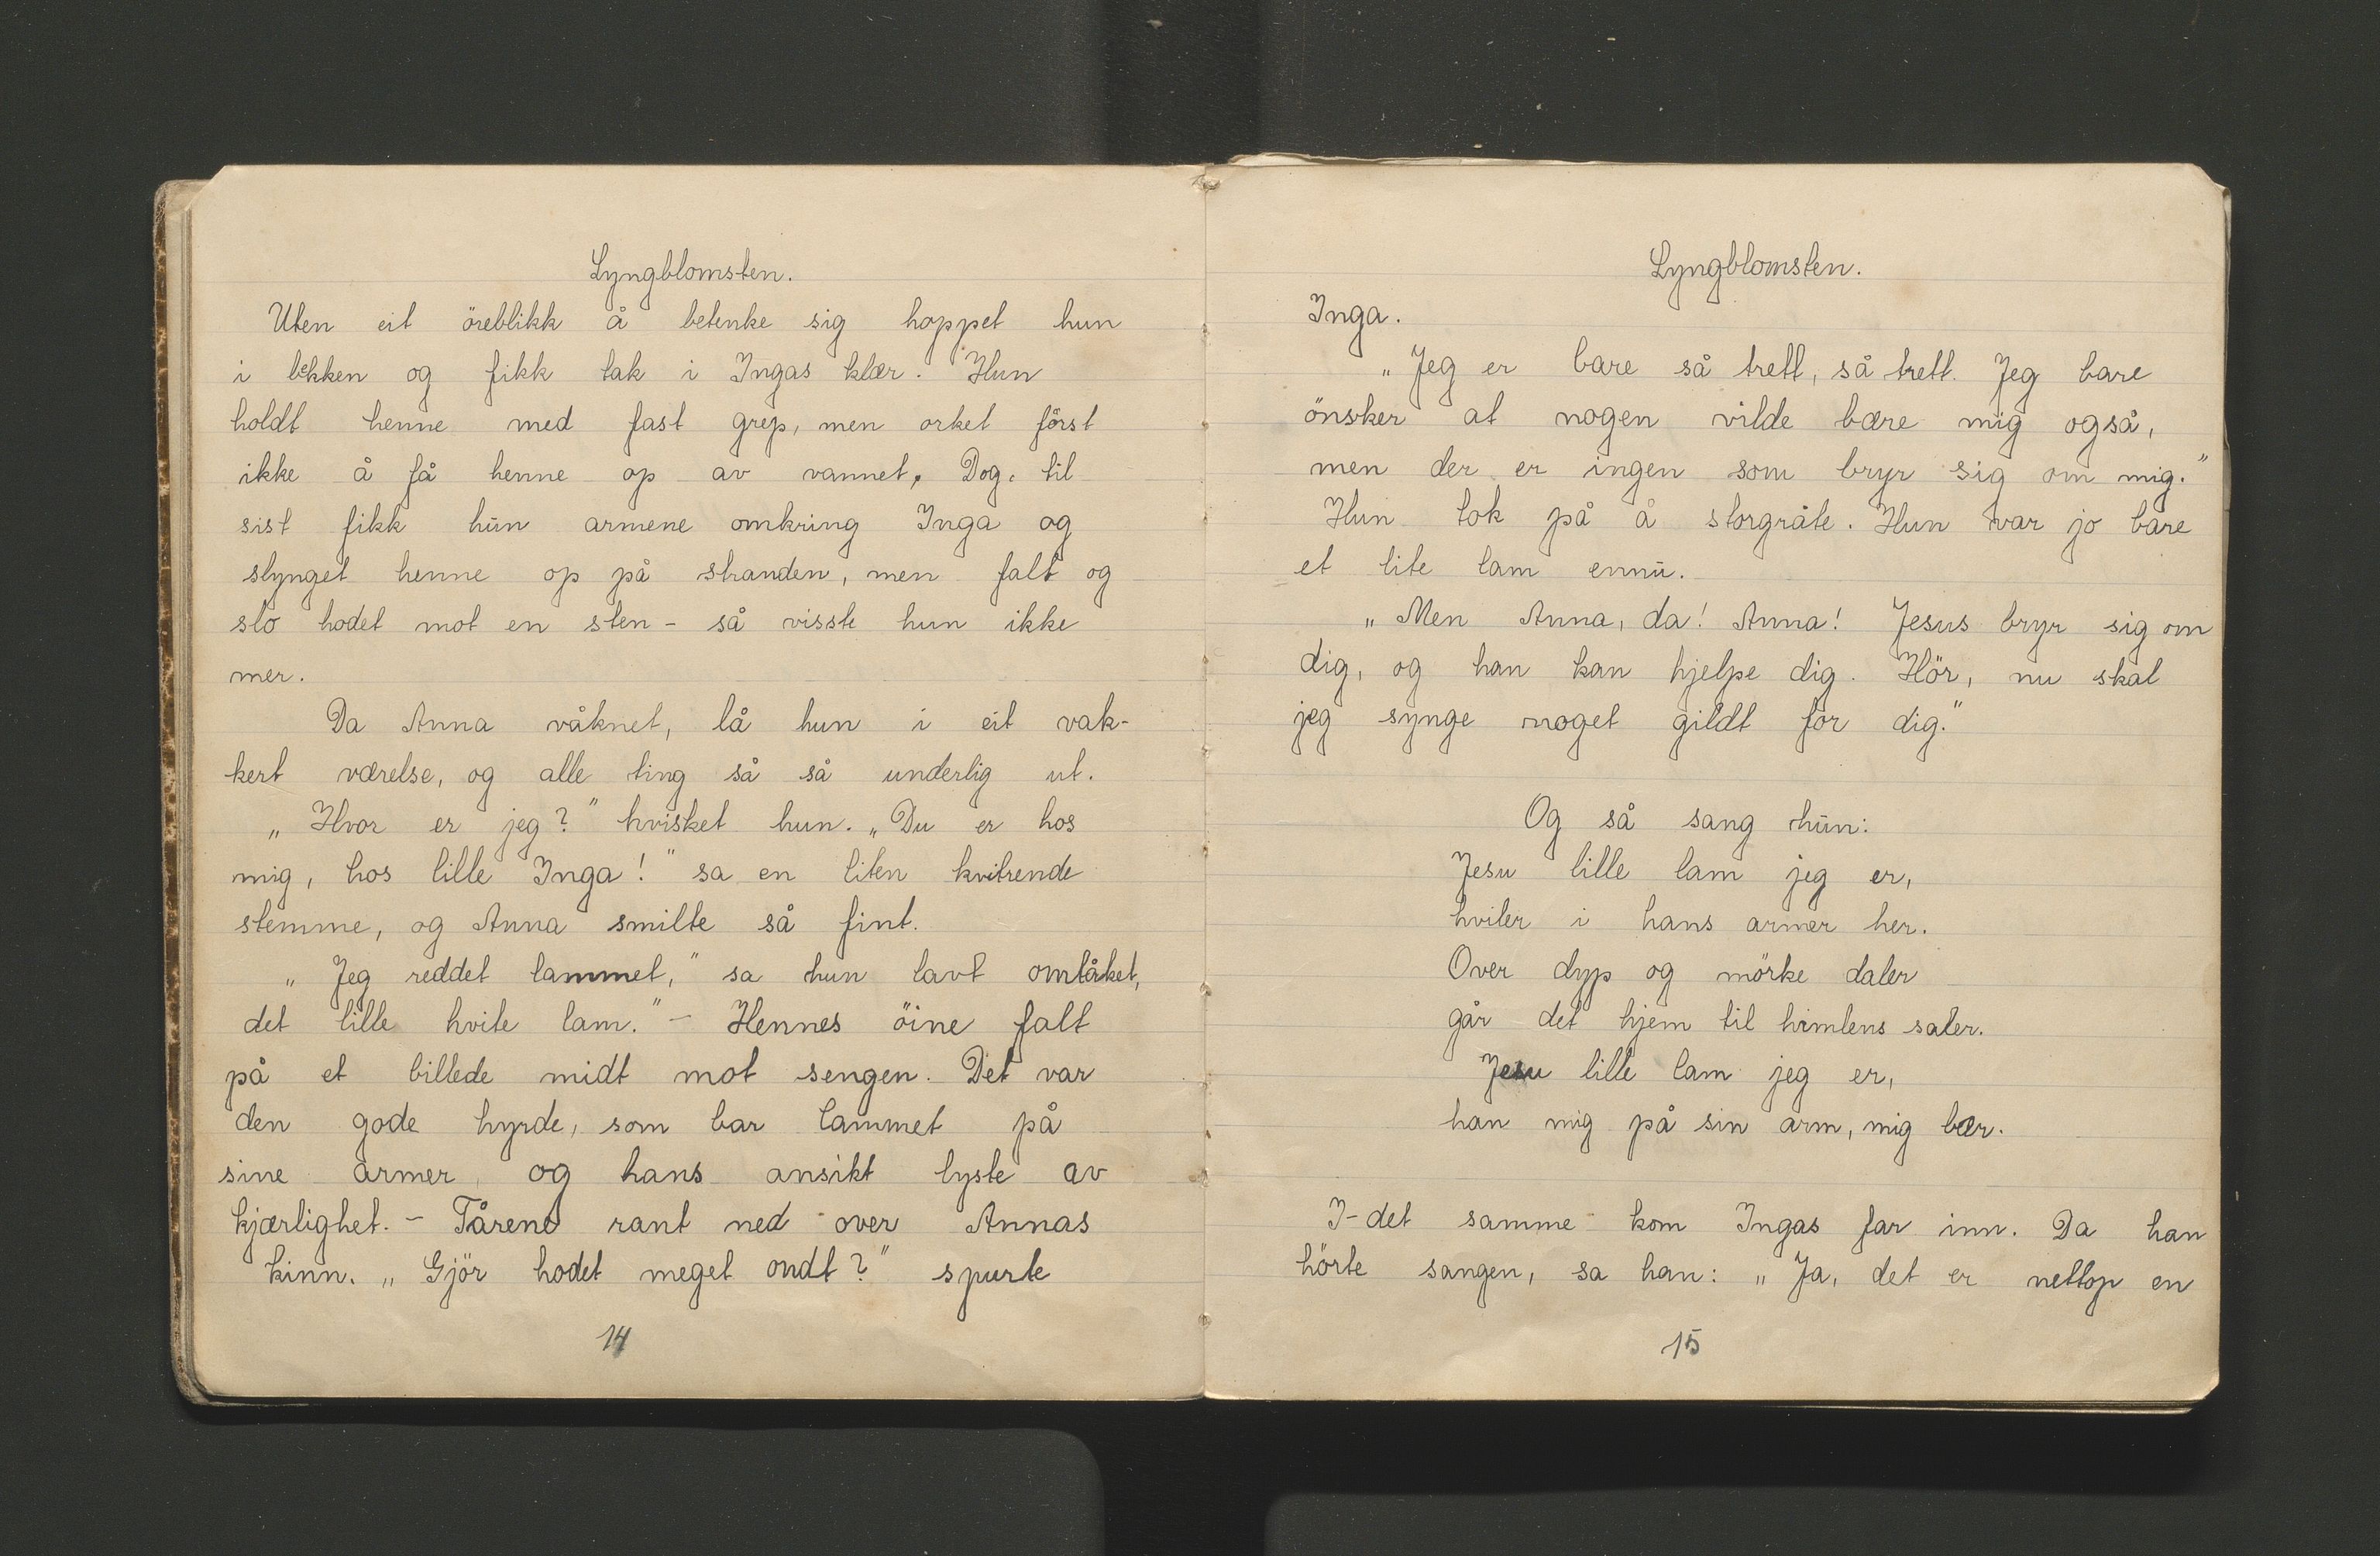 Lyngblomsten.
Uten eit öreblikk å betenke sig hoppet hun
i bekken og fikk tak i Ingas klær. Hun
holdt henne med fast grep, men orket först
ikke å få henne op av vannet. Dog. til
sist fikk hūn armene omkring Inga og
slynget henne op på stranden, men falt og
slo hodet mot en sten - så visste hun ikke
mer.
Da Anna våknet, lå hun i eit vak-
kert værelse, og alle ting så så underlig ut.
„Hvor er jeg?" hvisket hun. „Du er hos
mig, hos lille Inga!" sa en liten kvitrende
stemme, og Anna smilte så fint.
„Jeg reddet lammet," sa hun lavt omtåket,
det lille hvite lam." - Hennes öine falt
på et billede midt mot sengen. Det var
den gode hyrde, som bar lammet på
sine armer, og hans ansikt lyste av
kjærlighet. - Tårene rant ned over Annas
kinn. „Gjör hodet meget ondt?" spurte
14
Lyngblomsten.
Inga.
„Jeg er bare så trett, så trett. Jeg bare
önsker at nogen vilde bære mig også,
men der er ingen som bryr sig om mig."
Hun tok på å storgråte. Hun var jo bare
et lite lam ennū.
„Men Anna, da! Anna! Jesus bryr sig om
dig, og han kan hjelpe dig. Hör, nu skal
jeg synge noget gildt for dig."
Og så sang hūn:
Jesu lille lam jeg er,
hviler i hans armer her.
Over dyp og mörke daler
går det hjem til himlens saler.
Jesu lille lam jeg er,
han mig på sin arm, mig bær.
I-det samme kom Ingas far inn. Da han
hörte sangen, sa han: „Ja, det er nettop en
15